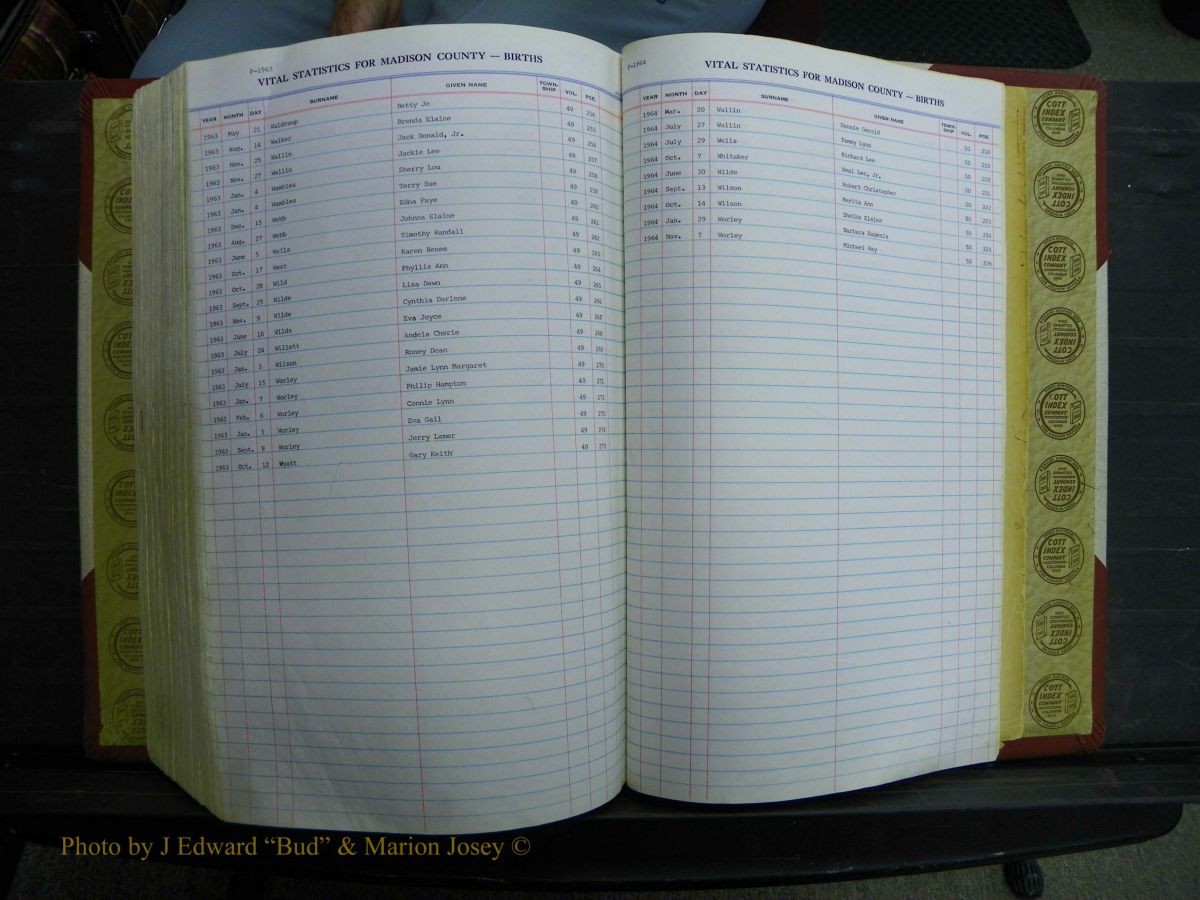 P-1963
VITAL STATISTICS FOR MADISON COUNTY — BIRTHS
YEAR MONTH DAY SURNAME GIVEN NAME TOWN-SHIP VOL. PGE.
1963 May 21 Waldroup Betty Jo 49 254
1963 Aug. 14 Walker Brenda Elaine 49 255
1963 Nov. 25 Wallin Jack Donald, Jr. 49 256
1963 Nov. 27 Wallin Jackie Lee 49 257
1963 Jan. 4 Wambles Sherry Lou 49 258
1963 Jan. 4 Wambles Terry Sue 49 259
1963 Dec. 15 Webb Edna Faye 49 260
1963 Aug. 27 Webb Johnna Elaine 49 261
1963 June 5 Wells Timothy Randall 49 262
1963 Oct. 17 West Karen Renee 49 263
1963 Oct. 28 Wild Phyllis Ann 49 264
1963 Sept. 25 Wilde Lisa Dawn 49 265
1963 Nov. 9 Wilde Cynthia Darlene 49 266
1963 June 10 Wilds Eva Joyce 49 267
1963 July 24 Willett Andela Cherie 49 268
1963 Jan. 3 Wilson Roney Dean 49 269
1963 July 15 Worley Jamie Lynn Margaret 49 270
1963 Jan. 7 Worley Philip Hampton 49 271
1963 Feb. 6 Worley Connie Lynn 49 272
1963 Jan. 3 Worley Eva Gail 49 273
1963 Sept. 9 Worley Jerry Lamer 49 274
1963 Oct. 12 Wyatt Gary Keith 49 275
P-1964
VITAL STATISTICS FOR MADISON COUNTY — BIRTHS
YEAR MONTH DAY SURNAME GIVEN NAME TOWN-SHIP VOL. PGE.
1964 Mar. 20 Wallin Dannie Gerald 50 218
1964 July 27 Wallin Tommy Lynn 50 219
1964 July 29 Wells Richard Lee 50 220
1964 Oct. 7 Whitaker Neal Lee, Jr. 50 221
1964 June 30 Wilde Robert Christopher 50 222
1964 Sept. 13 Wilson Merita Ann 50 223
1964 Oct. 14 Wilson Shelba Elaine 50 224
1964 Jan. 29 Worley Barbara Eugenia 50 225
1964 Nov. 7 Worley Michael Ray 50 226
COTT INDEX COMPANY COLUMBUS OHIO
Photo by J Edward “Bud” & Marion Josey ©